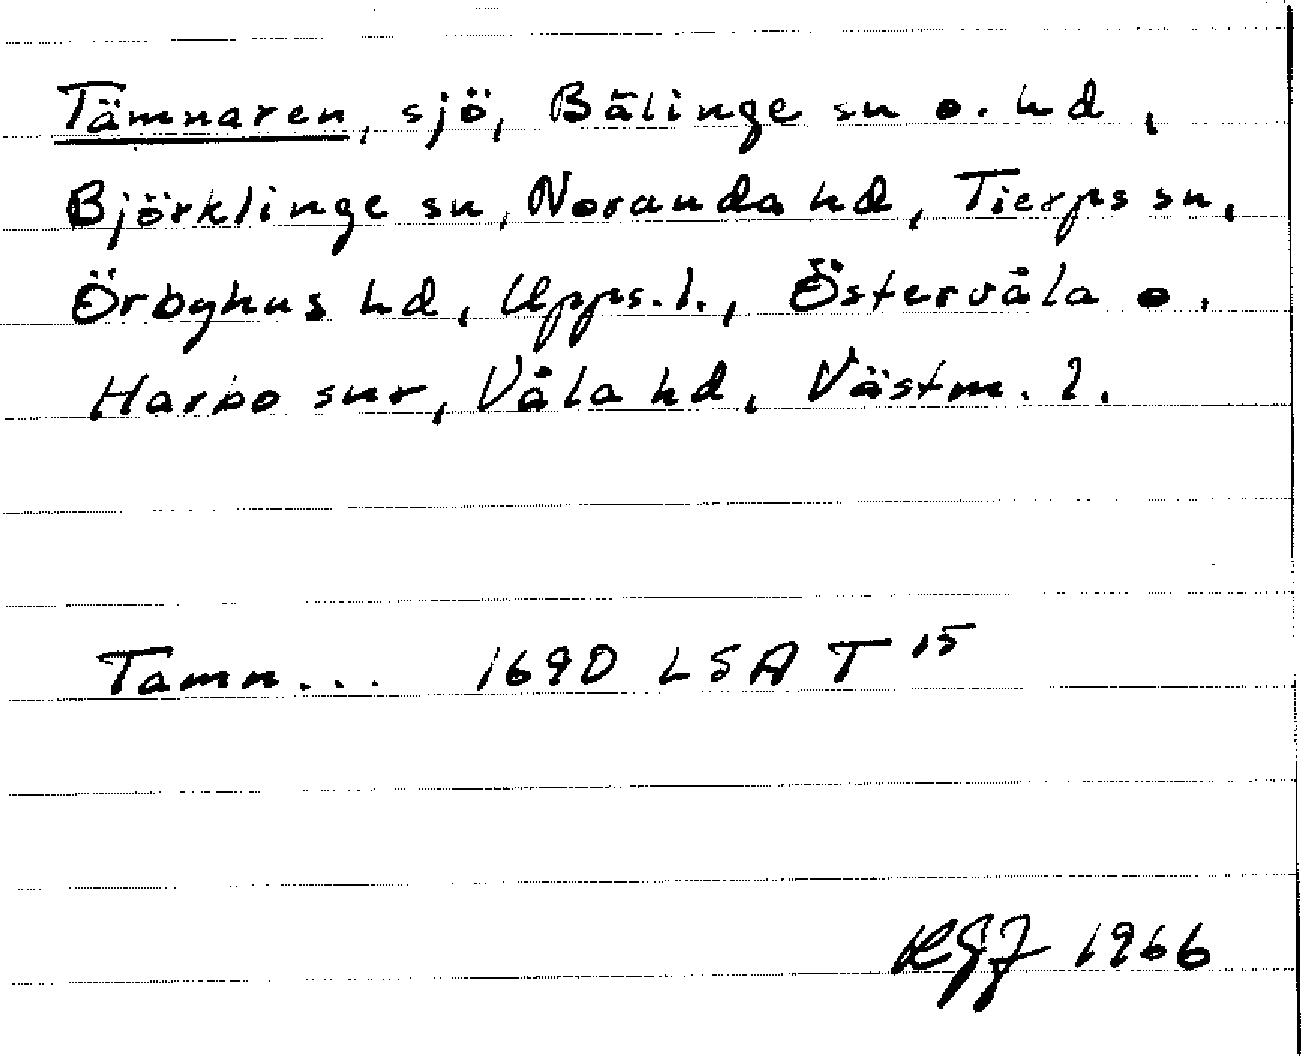 Tämnaren, sjö, Bälinge sn o. hd,
Björklinge sn, Noranda hd, Tierps sn,
Örbyhus hd, Upps. l., Östervåla o.
Harbo snr, Våla hd, Västm. l.
Tamn... 1690 LSA T 15
RGJ 1966